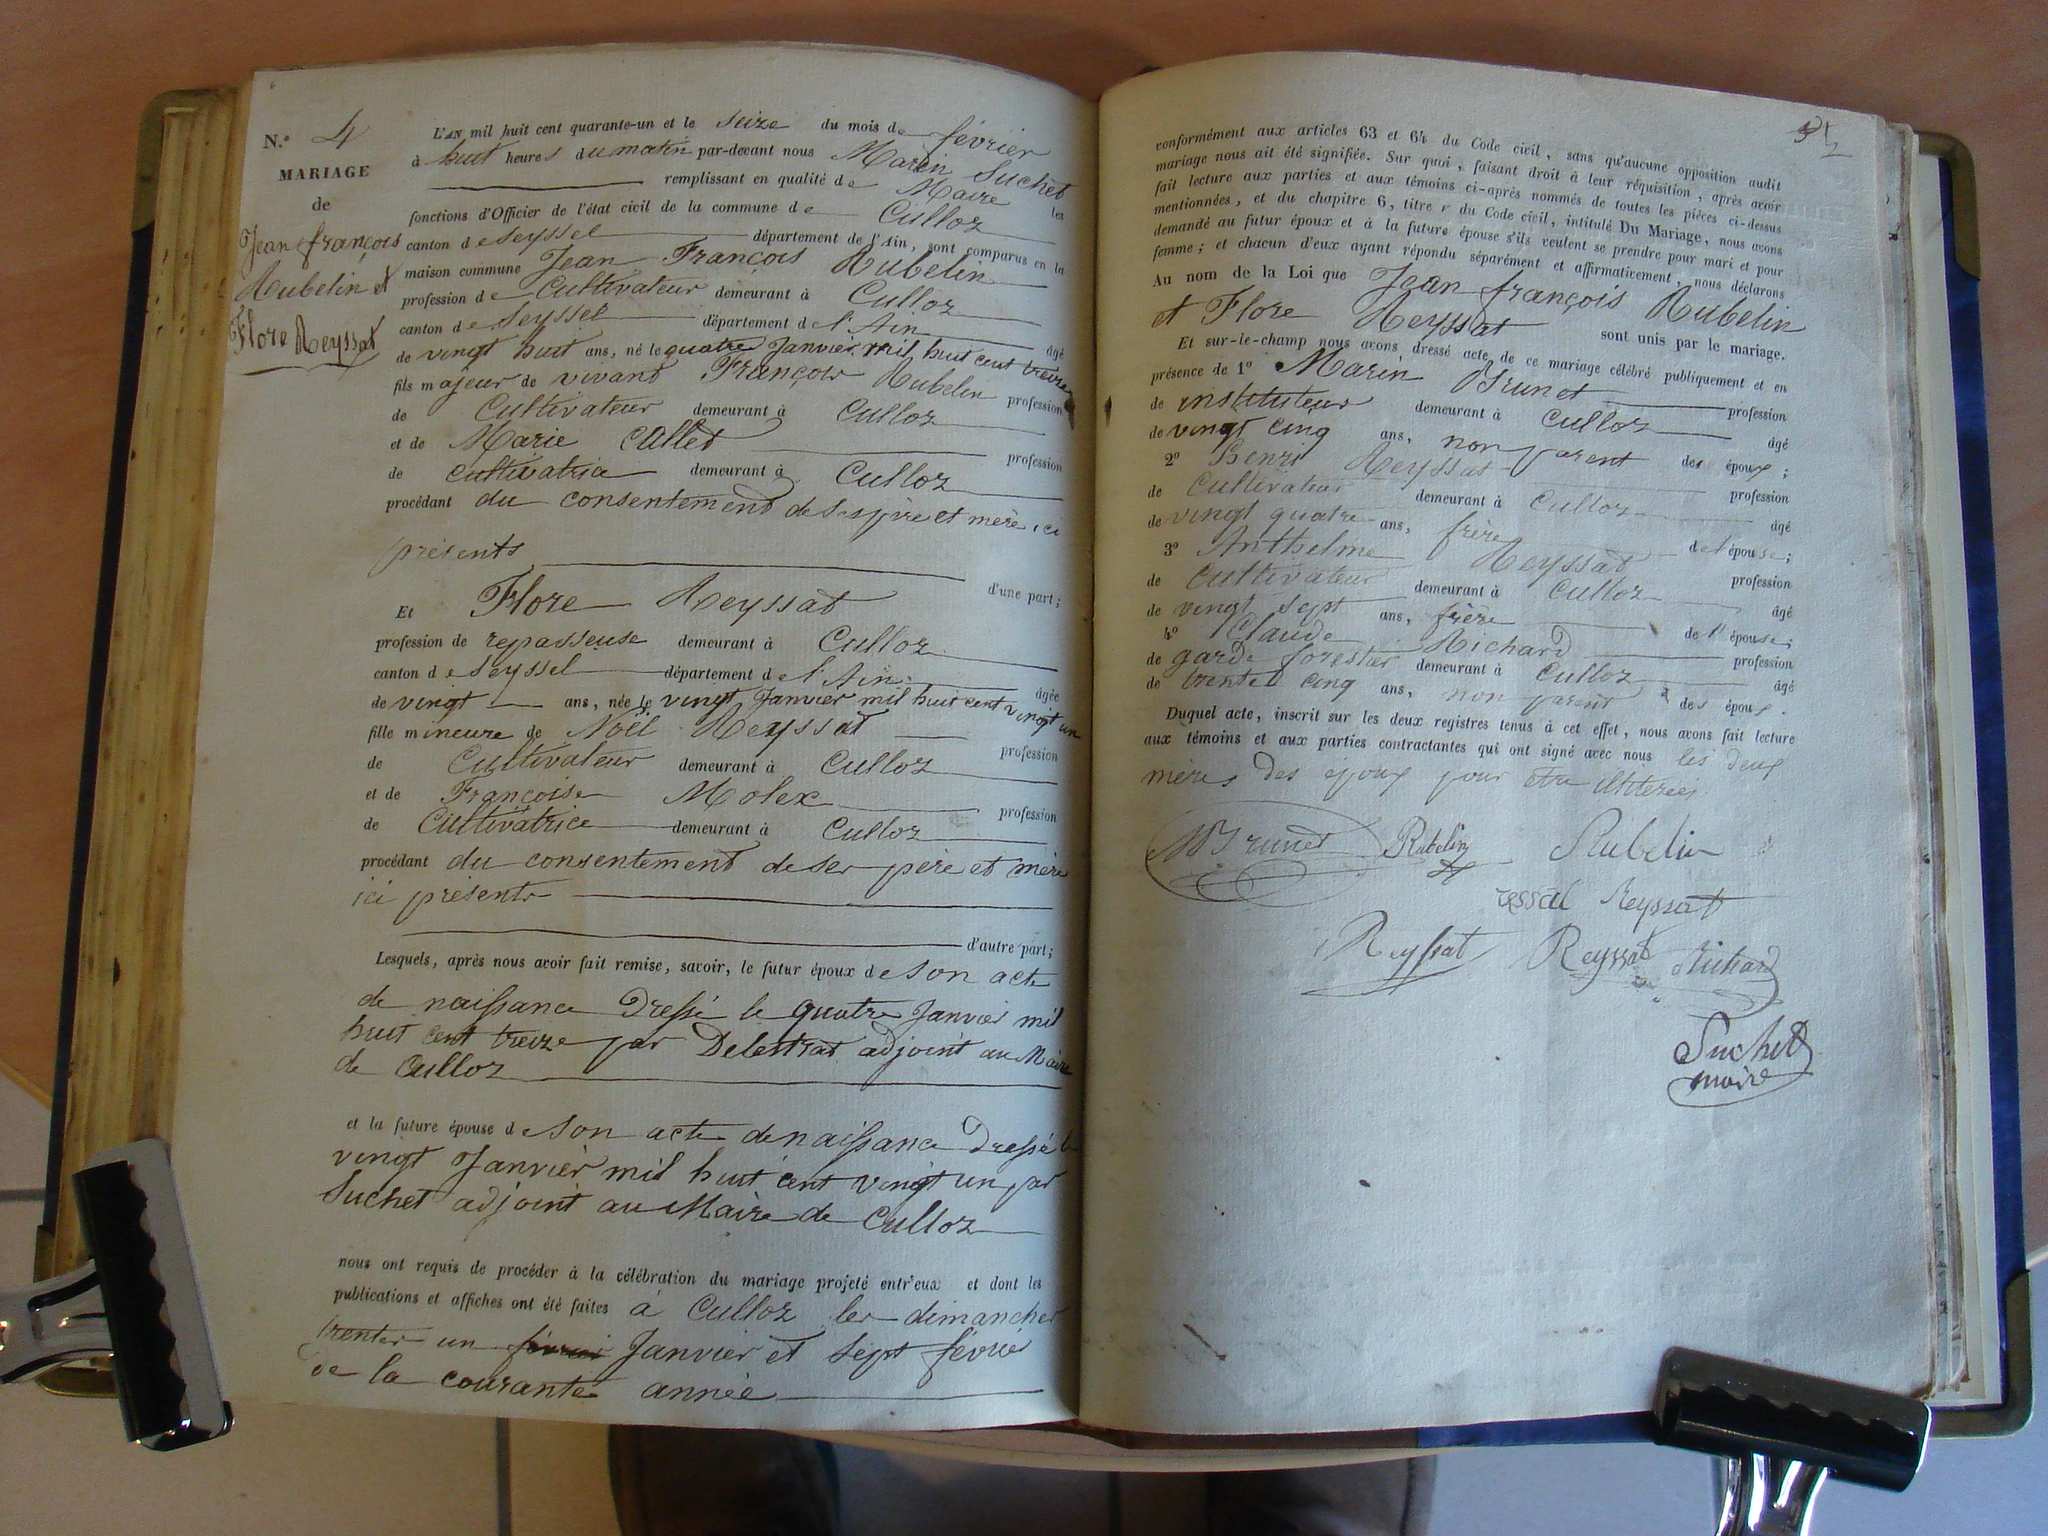 N.º 4
MARIAGE
de
Jean françois
Rubelin et
Flore Reyssat
L'AN mil huit cent quarante-un et le seize du mois de février
à huit heures du matin par-devant nous Marin Suchet
remplissant en qualité de Maire les
fonctions d'Officier de l'état civil de la commune de Culloz
canton de Seyssel département de l'Ain, sont comparus en la
maison commune Jean François Rubelin
profession de Cultivateur demeurant à Culloz
canton de Seyssel département de l'Ain âgé
de vingt huit ans, né le quatre Janvier mil huit cent treize
fils majeur de vivant François Rubelin profession
de Cultivateur demeurant à Culloz
et de Marie Callet profession
de cultivatrice demeurant à Culloz
procédant du consentement de ses père et mère ici
présents d'une part;
Et Flore Reyssat
profession de repasseuse demeurant à Culloz
canton de Seyssel département de l'Ain âgée
de vingt ans, née le vingt Janvier mil huit cent vingt un
fille mineure de Noël Reyssat profession
de Cultivateur demeurant à Culloz
et de Françoise Molex profession
de Cultivatrice demeurant à Culloz
procédant du consentement de ses père et mère
ici présents
d'autre part;
Lesquels, après nous avoir fait remise, savoir, le futur époux de son acte
de naissance Dressé le quatre Janvier mil
huit cent treize par Delestrat adjoint au Maire
de Culloz
et la future épouse de son acte de naissance Dressé le
vingt Janvier mil huit cent vingt un par
Suchet adjoint au Maire de Culloz
nous ont requis de procéder à la célébration du mariage projeté entr'eux et dont les
publications et affiches ont été faites à Culloz les dimanches
trente un février Janvier et sept février
de la courante année
conformément aux articles 63 et 64 du Code civil, sans qu'aucune opposition audit
mariage nous ait été signifiée. Sur quoi, faisant droit à leur réquisition, après avoir
fait lecture aux parties et aux témoins ci-après nommés de toutes les pièces ci-dessus
mentionnées, et du chapitre 6, titre v du Code civil, intitulé Du Mariage, nous avons
demandé au futur époux et à la future épouse s'ils veulent se prendre pour mari et pour
femme; et chacun d'eux ayant répondu séparément et affirmativement, nous déclarons
Au nom de la Loi que Jean françois Rubelin
et Flore Reyssat sont unis par le mariage.
Et sur-le-champ nous avons dressé acte de ce mariage célébré publiquement et en
présence de 1º Marin Brunet profession
de instituteur demeurant à Culloz âgé
de vingt cinq ans, non parent des époux;
2º Benri Reyssat profession
de Cultivateur demeurant à Culloz âgé
de vingt quatre ans, frère de l'épouse;
3º Anthelme Reyssat profession
de Cultivateur demeurant à Culloz âgé
de vingt sept ans, frère de l'épouse;
4º Claude Richard profession
de garde forestier demeurant à Culloz âgé
de trente cinq ans, non parent des époux.
Duquel acte, inscrit sur les deux registres tenus à cet effet, nous avons fait lecture
aux témoins et aux parties contractantes qui ont signé avec nous les deux
mères des époux pour être illiterées
M Brunet Rubelin Rubelin
ressat Reyssat
Reyssat Reyssat Richard
Suchet
maire